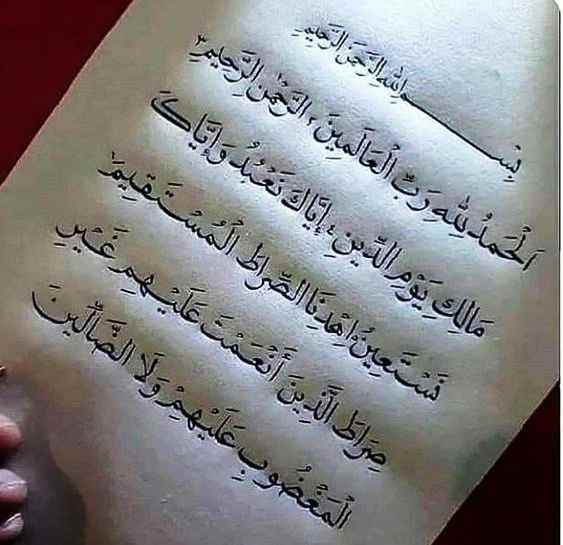 بِسْمِ اللهِ الرَّحْمٰنِ الرَّحِيْمِ
اَلْحَمْدُ لِلهِ رَبِّ الْعَالَمِينَ ، الرَّحْمٰنِ الرَّحِيْمِ
مَالِكِ يَوْمِ الدِّينِ ، إِيَّاكَ نَعْبُدُ وَإِيَّاكَ
نَسْتَعِينُ ، اهْدِنَا الصِّرَاطَ الْمُسْتَقِيمَ
صِرَاطَ الَّذِينَ أَنْعَمْتَ عَلَيْهِمْ غَيْرِ
الْمَغْضُوبِ عَلَيْهِمْ وَلَا الضَّالِّينَ